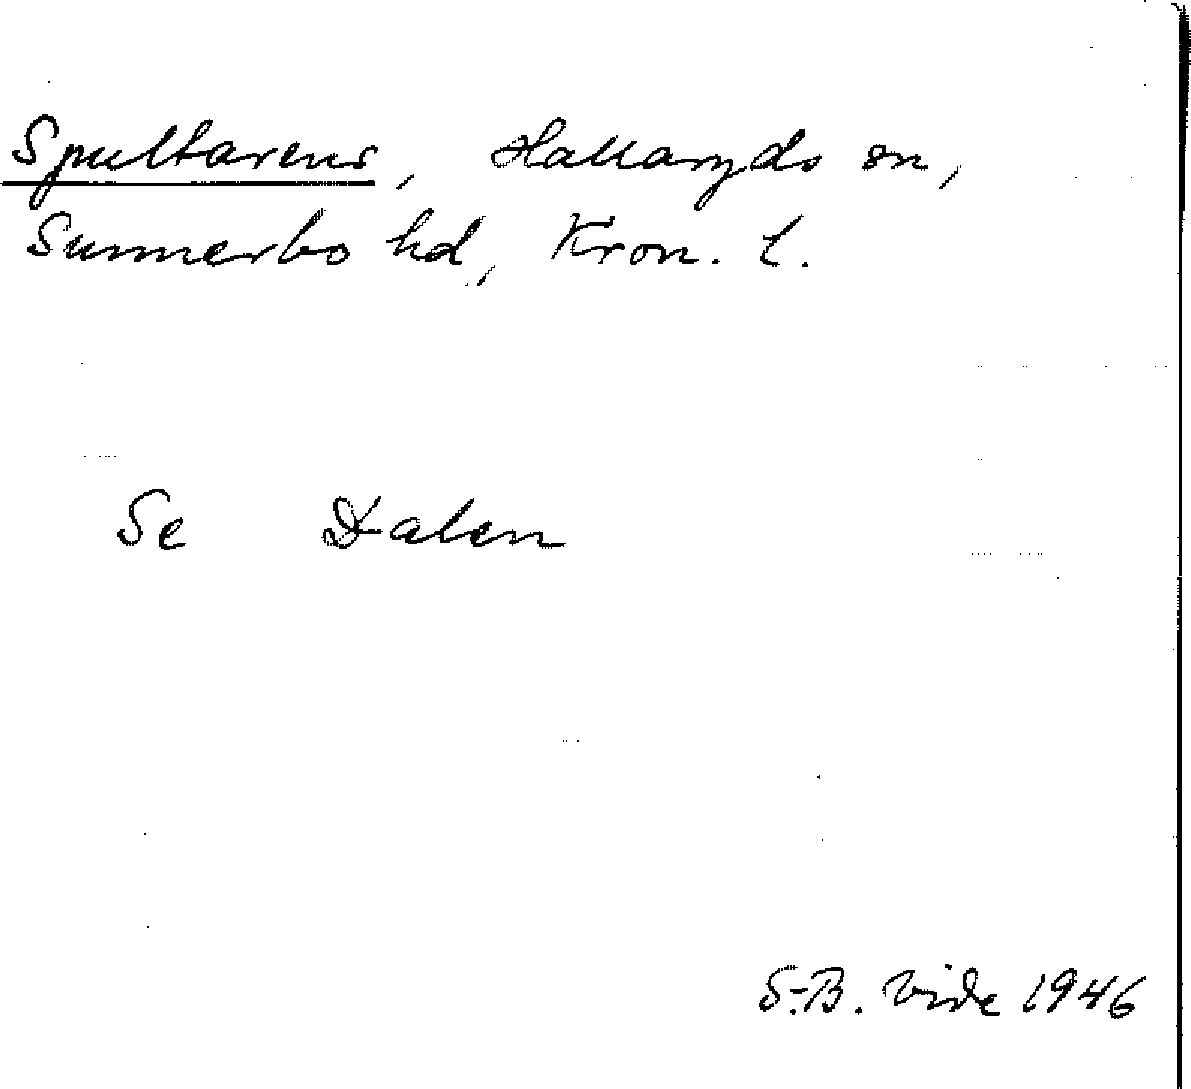 Spultarens, Hallaryds sn,
Sunnerbo hd, Kron. l.
Se Dalen
S.-B. Vide 1946